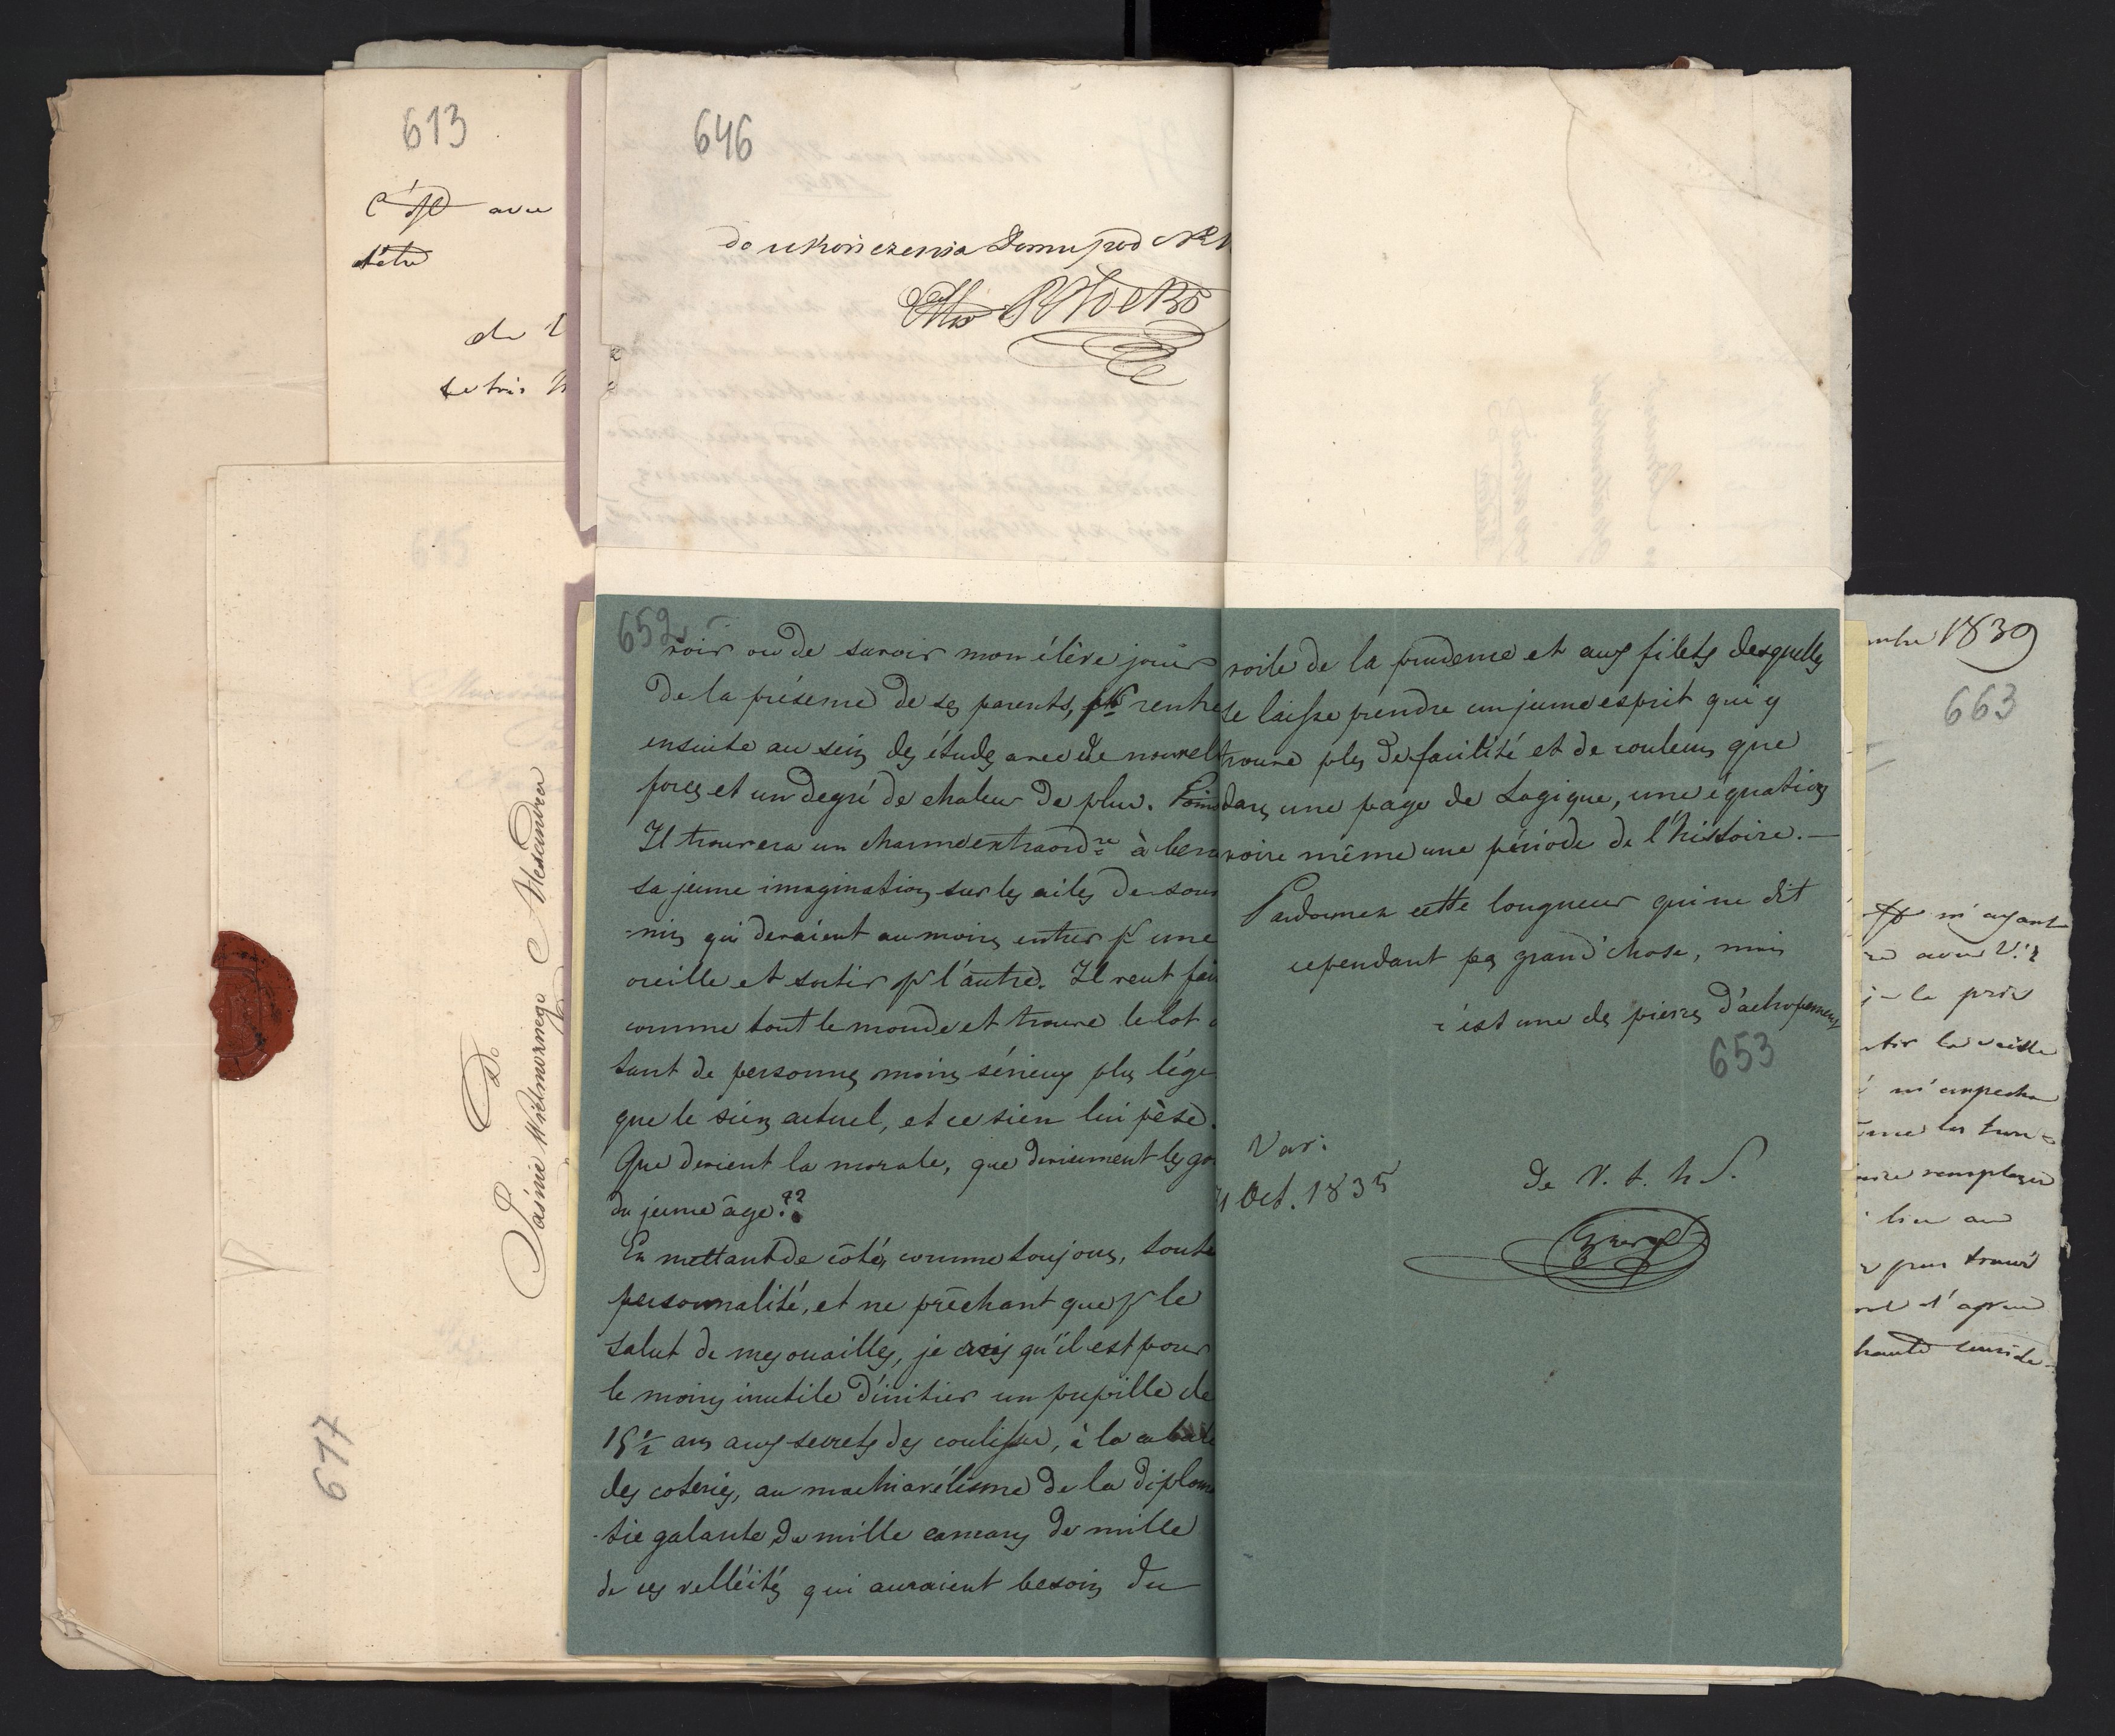 613
c'est avec
d'être
de V
le très h
646
do ukończenia Domu pod N
617
Do
Jaśnie Wielmożnego Alexandra
652
voir ou de savoir mon élève jouir
de la présence de ses parents, rentre
ensuite au sein des études avec de nouvel
forces et un degré de chaleur de plus.
Il trouvera un charme extraordre à
sa jeune imagination sur les ailes de
qui devaient au moins entrer pr une
oreille et sortir pr l'autre. Il veut fai
comme tout le monde et trouve le lot
tant de personnes moins sérieux plus lége
que le sien actuel, et ce sien lui pèse.
Que devient la morale, que deviennent les go
du jeune âge??
En mettant de côté, comme toujours, toute
personnalité, et ne prêchant que pr le
salut de mes ouailles, je crois qu'il est pour
le moins inutile d'initier un pupille de
15½ ans aux secrets des coulisses, à la cabale
des coteries, au machiavélisme de la diploma
-tie galante de mille cancans de mille
de ces velléités qui auraient besoin du
voile de la prudence et aux filets desquelles
se laisse prendre un jeune esprit qui y
trouve plus de facilité et de couleurs que
dans une page de Logique, une équation
voire même une période de l'histoire. —
Pardonnez cette longueur qui ne dit
cependant pas grand'chose, mais
c'est une des pierres d'achopement
653
Var:
Oct. 1835
de V. t. h S.
1839
663
m'ayant
avec V.
je le prie
la veille
m'empecha
remplacer
lieu au
pour trouvé
d'agréer
haute conside-